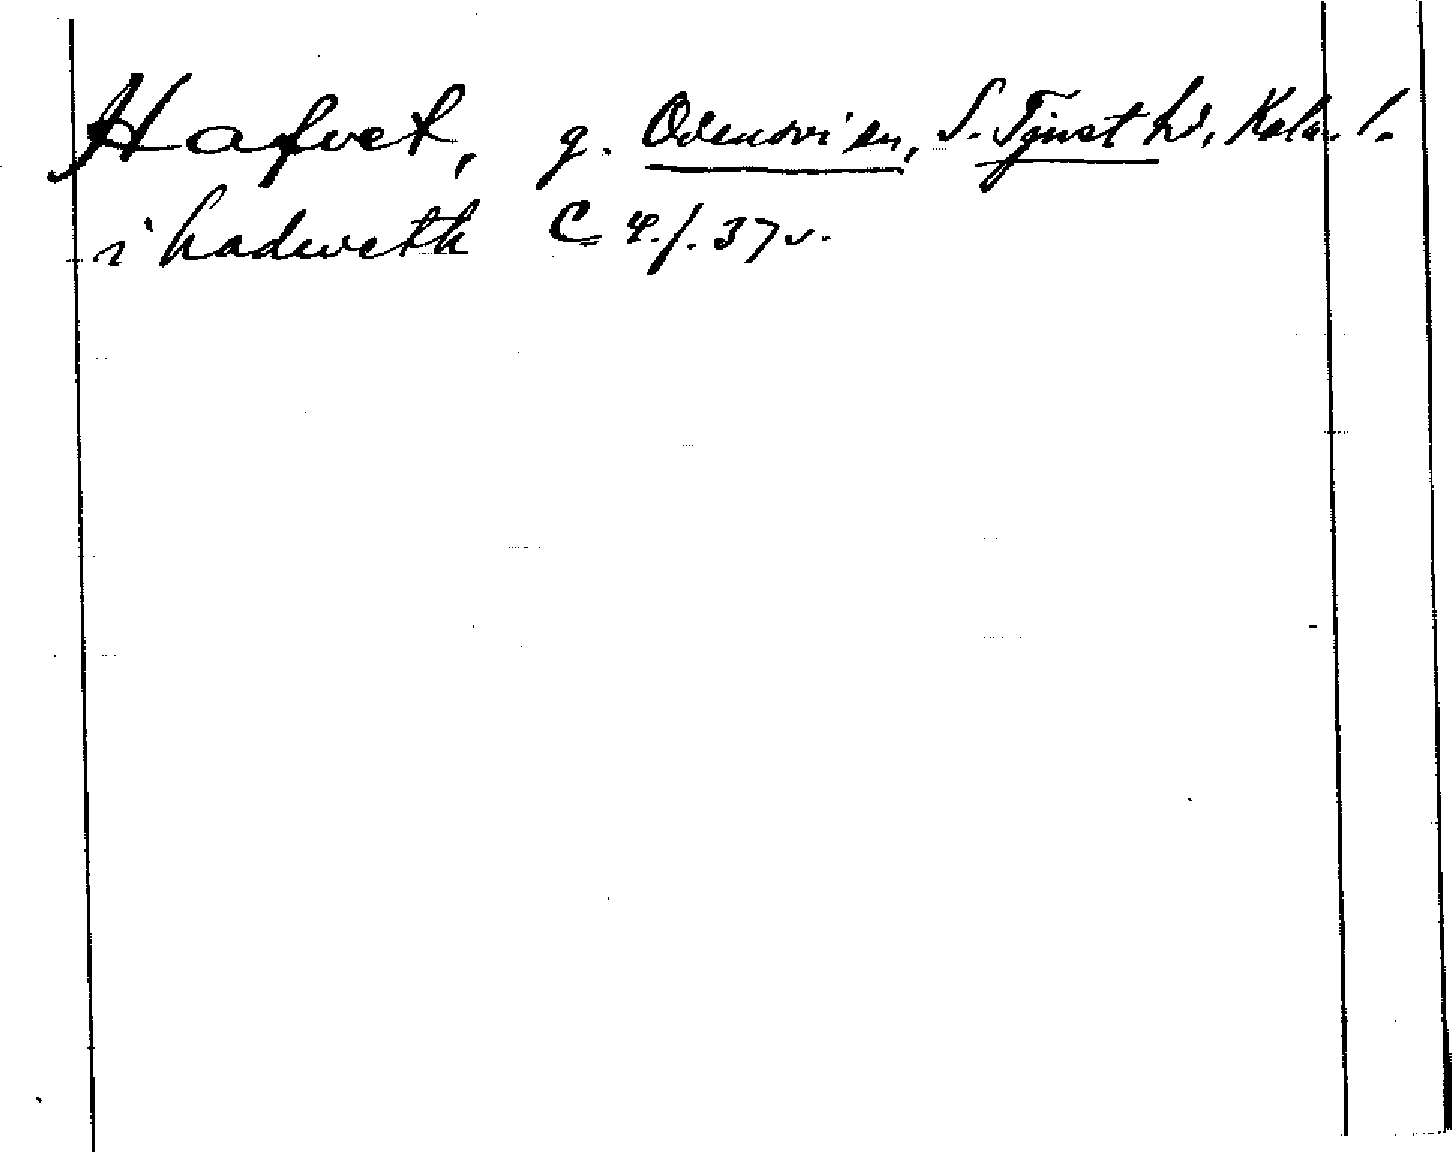 Hafvet, g. Odensvi sn, S. Tjust hd, Kalm. l.
i hadweth C 4. f. 37 v.